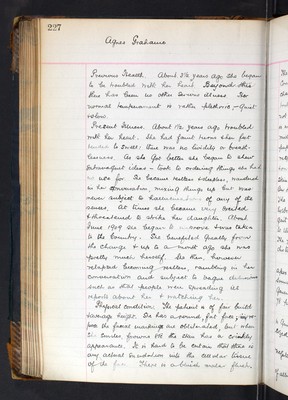 227
Agnes Grahame
Previous Health. About 3½ years ago she began
to be troubled with her heart. Beyond this
there has been no other serious illness. Her
normal temperament is rather plethoric, - Quiet
Present Illness. About 1½ years ago troubled
with her heart. She had faint turns then feet
to swell: there was no lividity or breath-
lessness. As she got better she began to show
extravagant ideas - took to ordering things she had
no use for. She became restless & sleepless, rambled
in her conversation, mixing things up but was
never subject to hallucinations of any of the
senses. At times she became very excited
& threatened to strike her daughter. About
June 1909 she began to improve & was taken
to the Country. She benefited greatly from
the change & up to a month ago she was
pretty much herself. She then, however
relapsed becoming restless, rambling in her
conversation and subject to vague delusions
such as that people were spreading
reports about her & watching her.
Physical condition. The patient is of fair build
& average height. She has a round, fat face, in re-
pose the facial markings are obliterated, but when
she smiles, frowns etc the skin has a crinkly
appearance. It is hard to be certain that there is
any actual in the areolar tissue
of the face. There is a malar flush